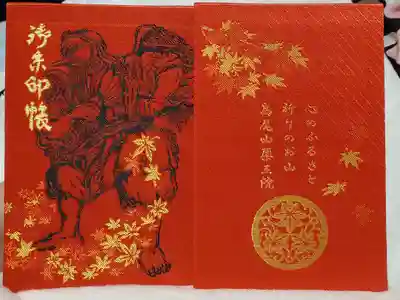 御朱印帳
心のふるさと
祈りのお山
高尾山薬王院